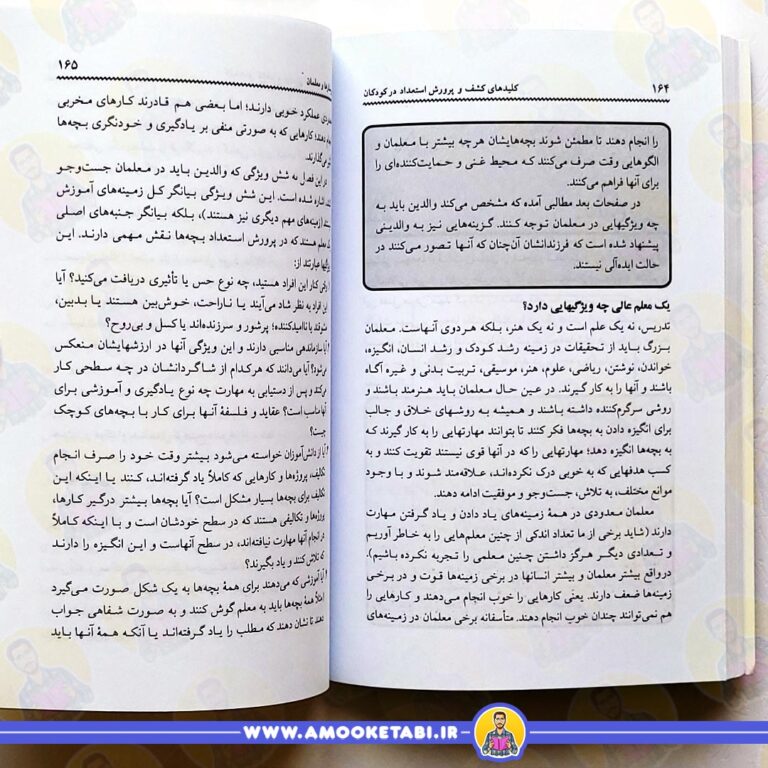 ۱۶۴
کلیدهای کشف و پرورش استعداد در کودکان
را انجام دهند تا مطمئن شوند بچه‌هایشان هرچه بیشتر با معلمان و
الگوهایی وقت صرف می‌کنند که محیط غنی و حمایت‌کننده‌ای را
برای آنها فراهم می‌کنند.
در صفحات بعد مطالبی آمده که مشخص می‌کند والدین باید به
چه ویژگیهایی در معلمان توجه کنند. گزینه‌هایی نیز به والدینی
پیشنهاد شده است که فرزندانشان آن‌چنان که آنها تصور می‌کنند در
حالت ایده‌آلی نیستند.
یک معلم عالی چه ویژگیهایی دارد؟
تدریس، نه یک علم است و نه یک هنر، بلکه هردوی آنهاست. معلمان
بزرگ باید از تحقیقات در زمینه رشد کودک و رشد انسان، انگیزه،
خواندن، نوشتن، ریاضی، علوم، هنر، موسیقی، تربیت بدنی و غیره آگاه
باشند و آنها را به کار گیرند. در عین حال معلمان باید هنرمند باشند و
روشی سرگرم‌کننده داشته باشند و همیشه به روشهای خلاق و جالب
برای انگیزه دادن به بچه‌ها فکر کنند تا بتوانند مهارتهایی را به کار گیرند که
به بچه‌ها انگیزه دهد؛ مهارتهایی را که در آنها قوی نیستند تقویت کنند و به
کسب هدفهایی که به خوبی درک نکرده‌اند، علاقه‌مند شوند و با وجود
موانع مختلف، به تلاش، جست‌وجو و موفقیت ادامه دهند.
معلمان معدودی در همهٔ زمینه‌های یاد دادن و یاد گرفتن مهارت
دارند (شاید برخی از ما تعداد اندکی از چنین معلم‌هایی را به خاطر آوریم
و تعدادی دیگر هرگز داشتن چنین معلمی را تجربه نکرده باشیم).
درواقع بیشتر معلمان و بیشتر انسانها در برخی زمینه‌ها قوت و در برخی
زمینه‌ها ضعف دارند. یعنی کارهایی را خوب انجام می‌دهند و کارهایی را
هم نمی‌توانند چندان خوب انجام دهند. متأسفانه برخی معلمان در زمینه‌های
۱۶۵
و معلمان
عملکرد خوبی دارند؛ اما بعضی هم قادرند کارهای مخربی
کارهایی که به صورتی منفی بر یادگیری و خودنگری بچه‌ها
می‌گذارند.
در این فصل به شش ویژگی که والدین باید در معلمان جست‌وجو
اشاره شده است. این شش ویژگی بیانگر کل زمینه‌های آموزش
(زمینه‌های مهم دیگری نیز هستند)، بلکه بیانگر جنبه‌های اصلی
معلم هستند که در پرورش استعداد بچه‌ها نقش مهمی دارند. این
عبارتند از:
کار این افراد هستید، چه نوع حس یا تأثیری دریافت می‌کنید؟ آیا
این افراد به نظر شاد می‌آیند یا ناراحت، خوش‌بین هستند یا بدبین،
ناامیدکننده؛ پرشور و سرزنده‌اند یا کسل و بی‌روح؟
آیا سازماندهی مناسبی دارند و این ویژگی آنها در ارزشهایشان منعکس
می‌شود؟ آیا می‌دانند که هرکدام از شاگردانشان در چه سطحی کار
می‌کند و پس از دستیابی به مهارت چه نوع یادگیری و آموزشی برای
آنها مناسب است؟ عقاید و فلسفهٔ آنها برای کار با بچه‌های کوچک
چیست؟
آیا از دانش‌آموزان خواسته می‌شود بیشتر وقت خود را صرف انجام
تکالیف، پروژه‌ها و کارهایی که کاملاً یاد گرفته‌اند، کنند یا اینکه این
تکالیف برای بچه‌ها بسیار مشکل است؟ آیا بچه‌ها بیشتر درگیر کارها،
پروژه‌ها و تکالیفی هستند که در سطح خودشان است و با اینکه کاملاً
در انجام آنها مهارت نیافته‌اند، در سطح آنهاست و این انگیزه را دارند
که تلاش کنند و یاد بگیرند؟
آیا آموزشی که می‌دهند برای همهٔ بچه‌ها به یک شکل صورت می‌گیرد
همهٔ بچه‌ها باید به معلم گوش کنند و به صورت شفاهی جواب
دهند تا نشان دهند که مطلب را یاد گرفته‌اند یا آنکه همهٔ آنها باید
WWW.AMOOKETABI.IR